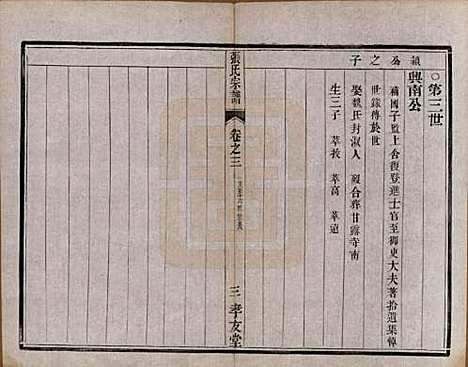 ○第三世
興南公
穎公之子
補國子監上舍復登進士官至御史大夫著拾遺集悼
世錄傳於世
娶魏氏封淑人 歿合葬甘露寺南
生三子 萃敉 萃高 萃逌
張氏宗譜
卷之三
三 孝友堂